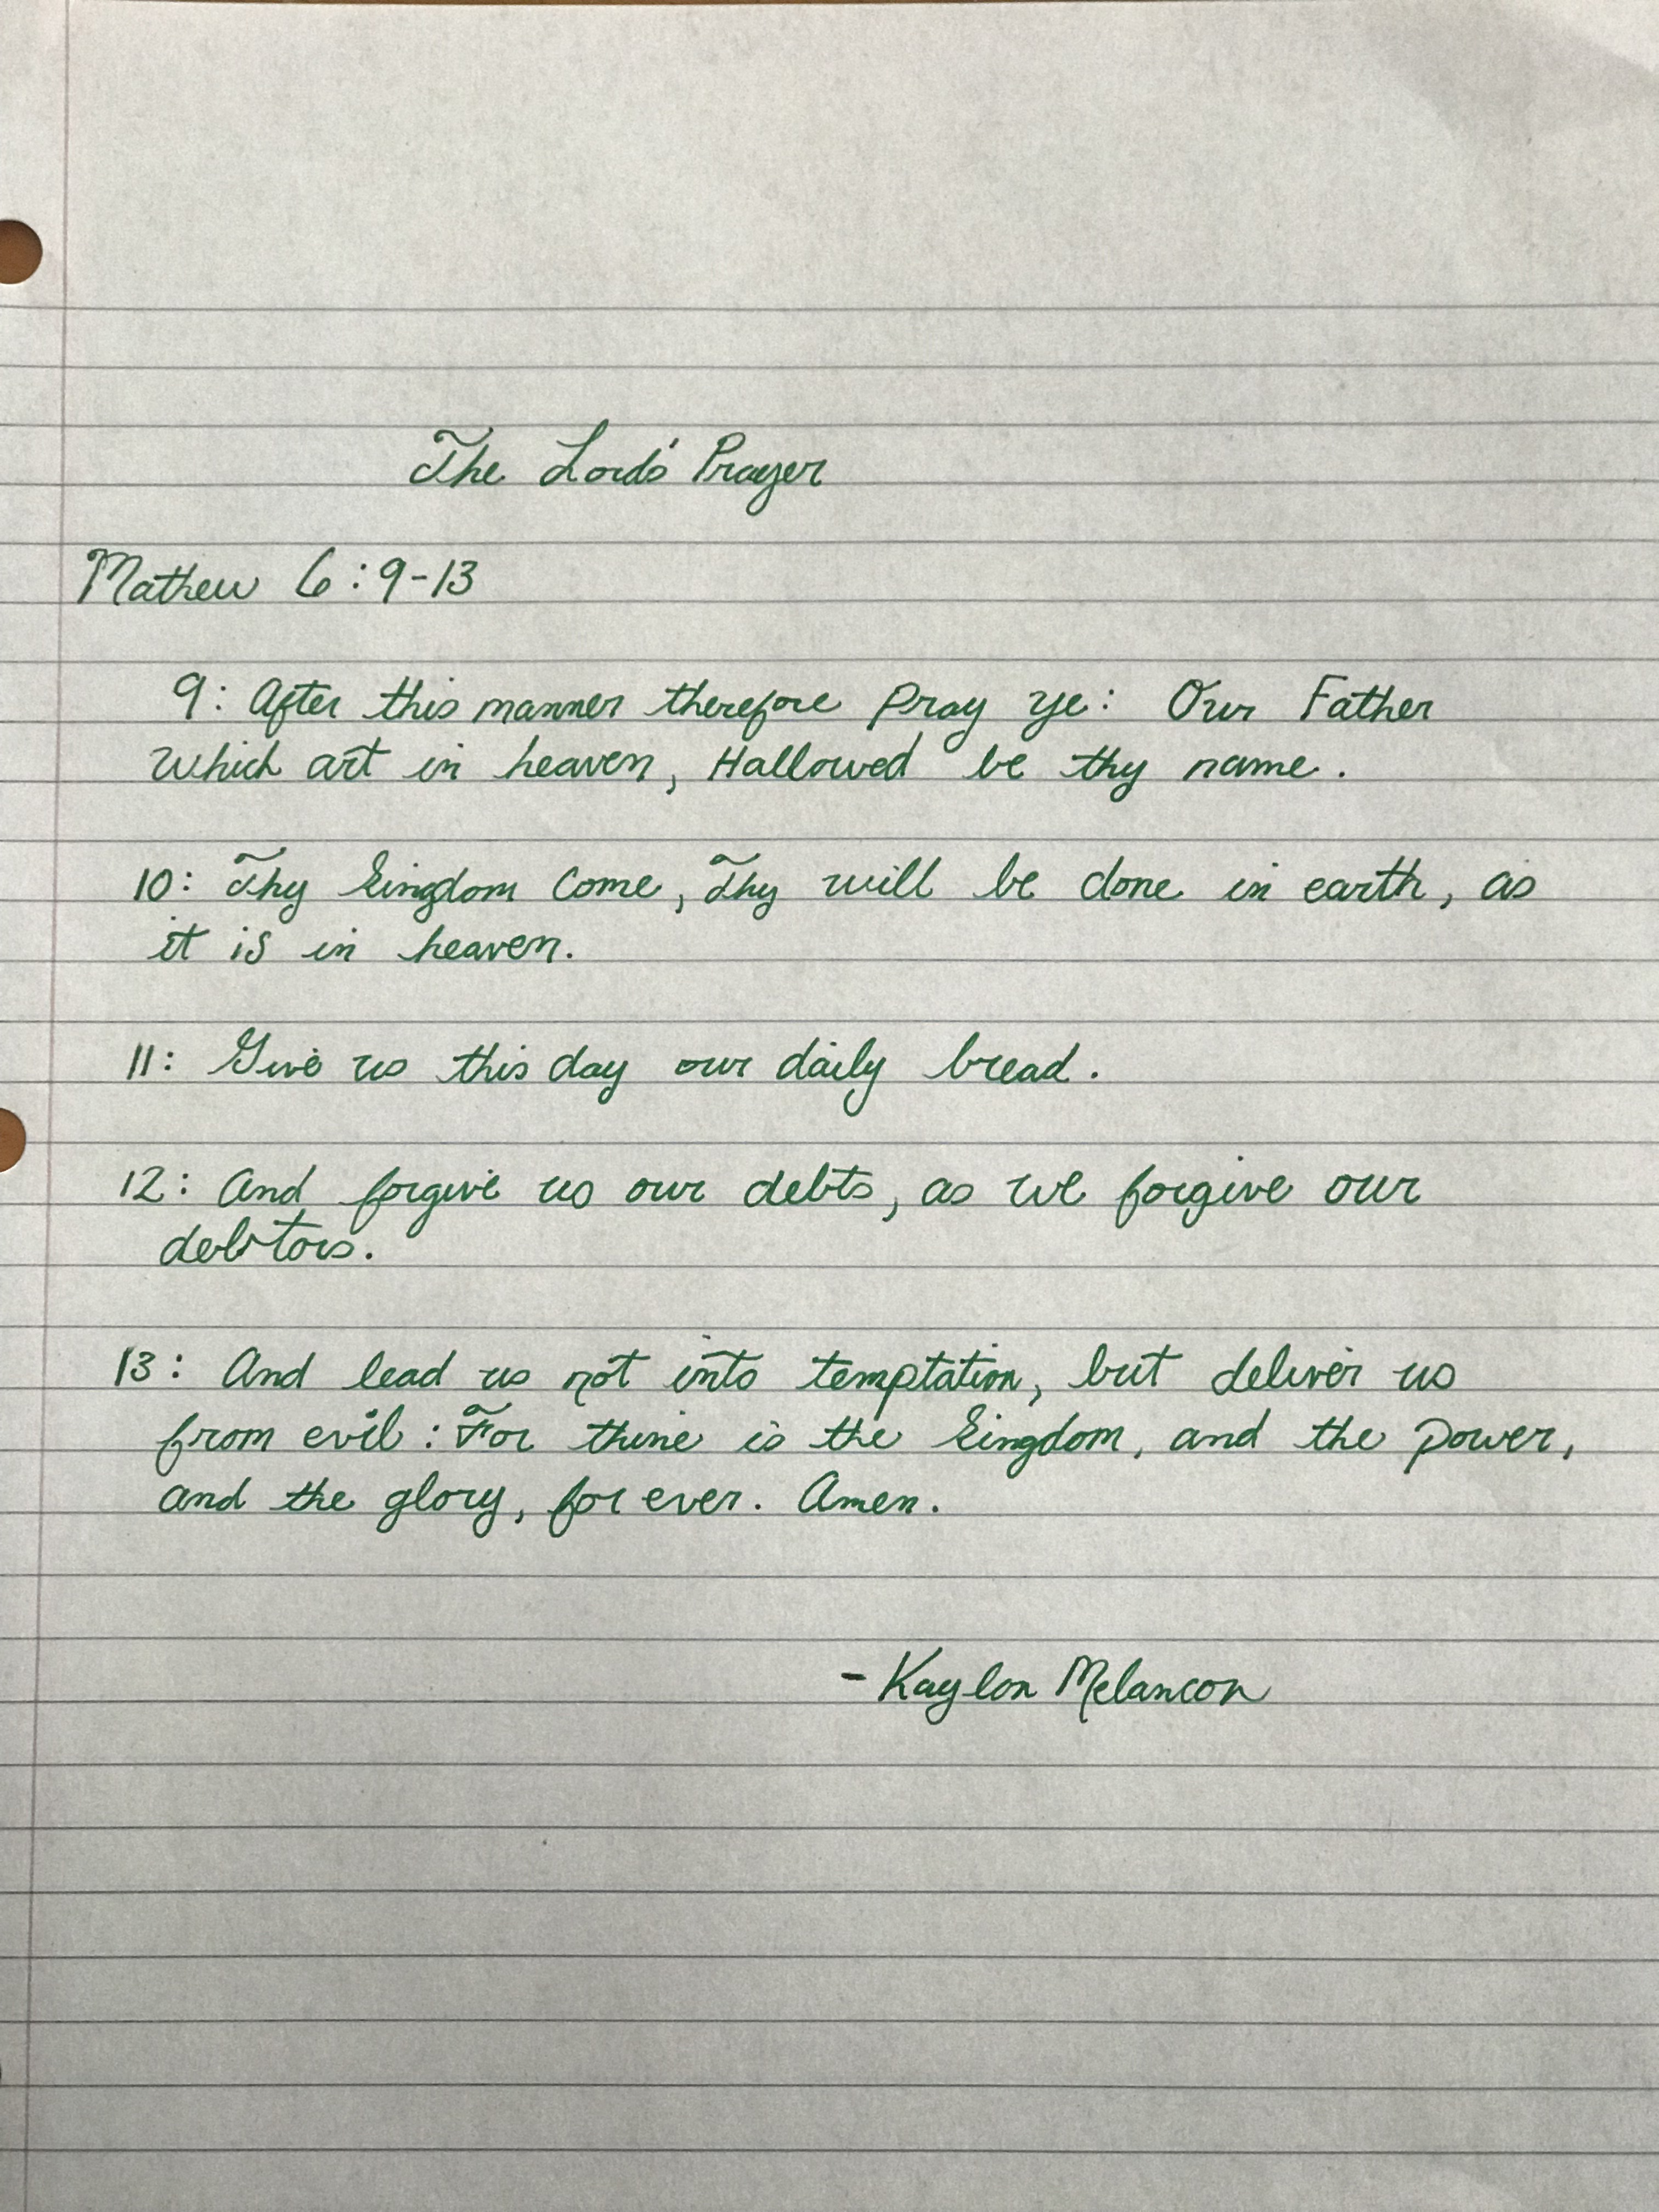 The Lord's Prayer
Mathew 6:9-13
9: After this manner therefore pray ye: Our Father
which art in heaven, Hallowed be thy name.
10: Thy kingdom come, Thy will be done in earth, as
it is in heaven.
11: Give us this day our daily bread.
12: And forgive us our debts, as we forgive our
debtors.
13: And lead us not into temptation, but deliver us
from evil: For thine is the kingdom, and the power,
and the glory, for ever. Amen.
- Kaylon Melancon